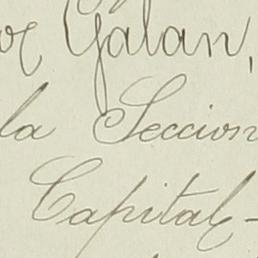 Galan,
la Seccion
Capital-